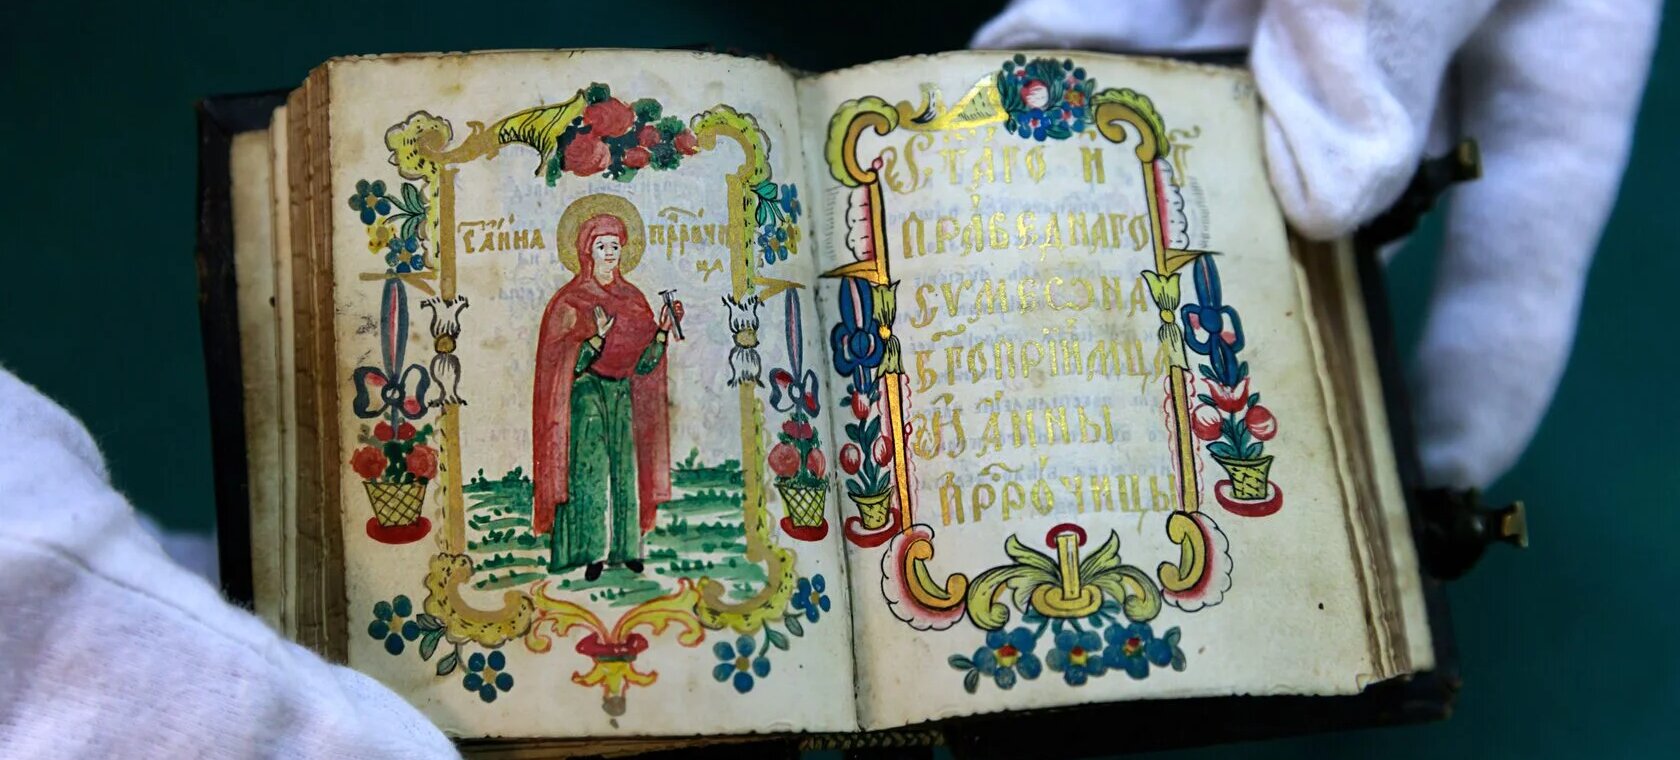 С̃таѧ А́нна прⷪ҇ро́чи
ца
С̃та́го и
пра́веднаго
Сѷмеѡ́на
бг҃опрїи́мца
А́нны
прⷪ҇ро́чицы